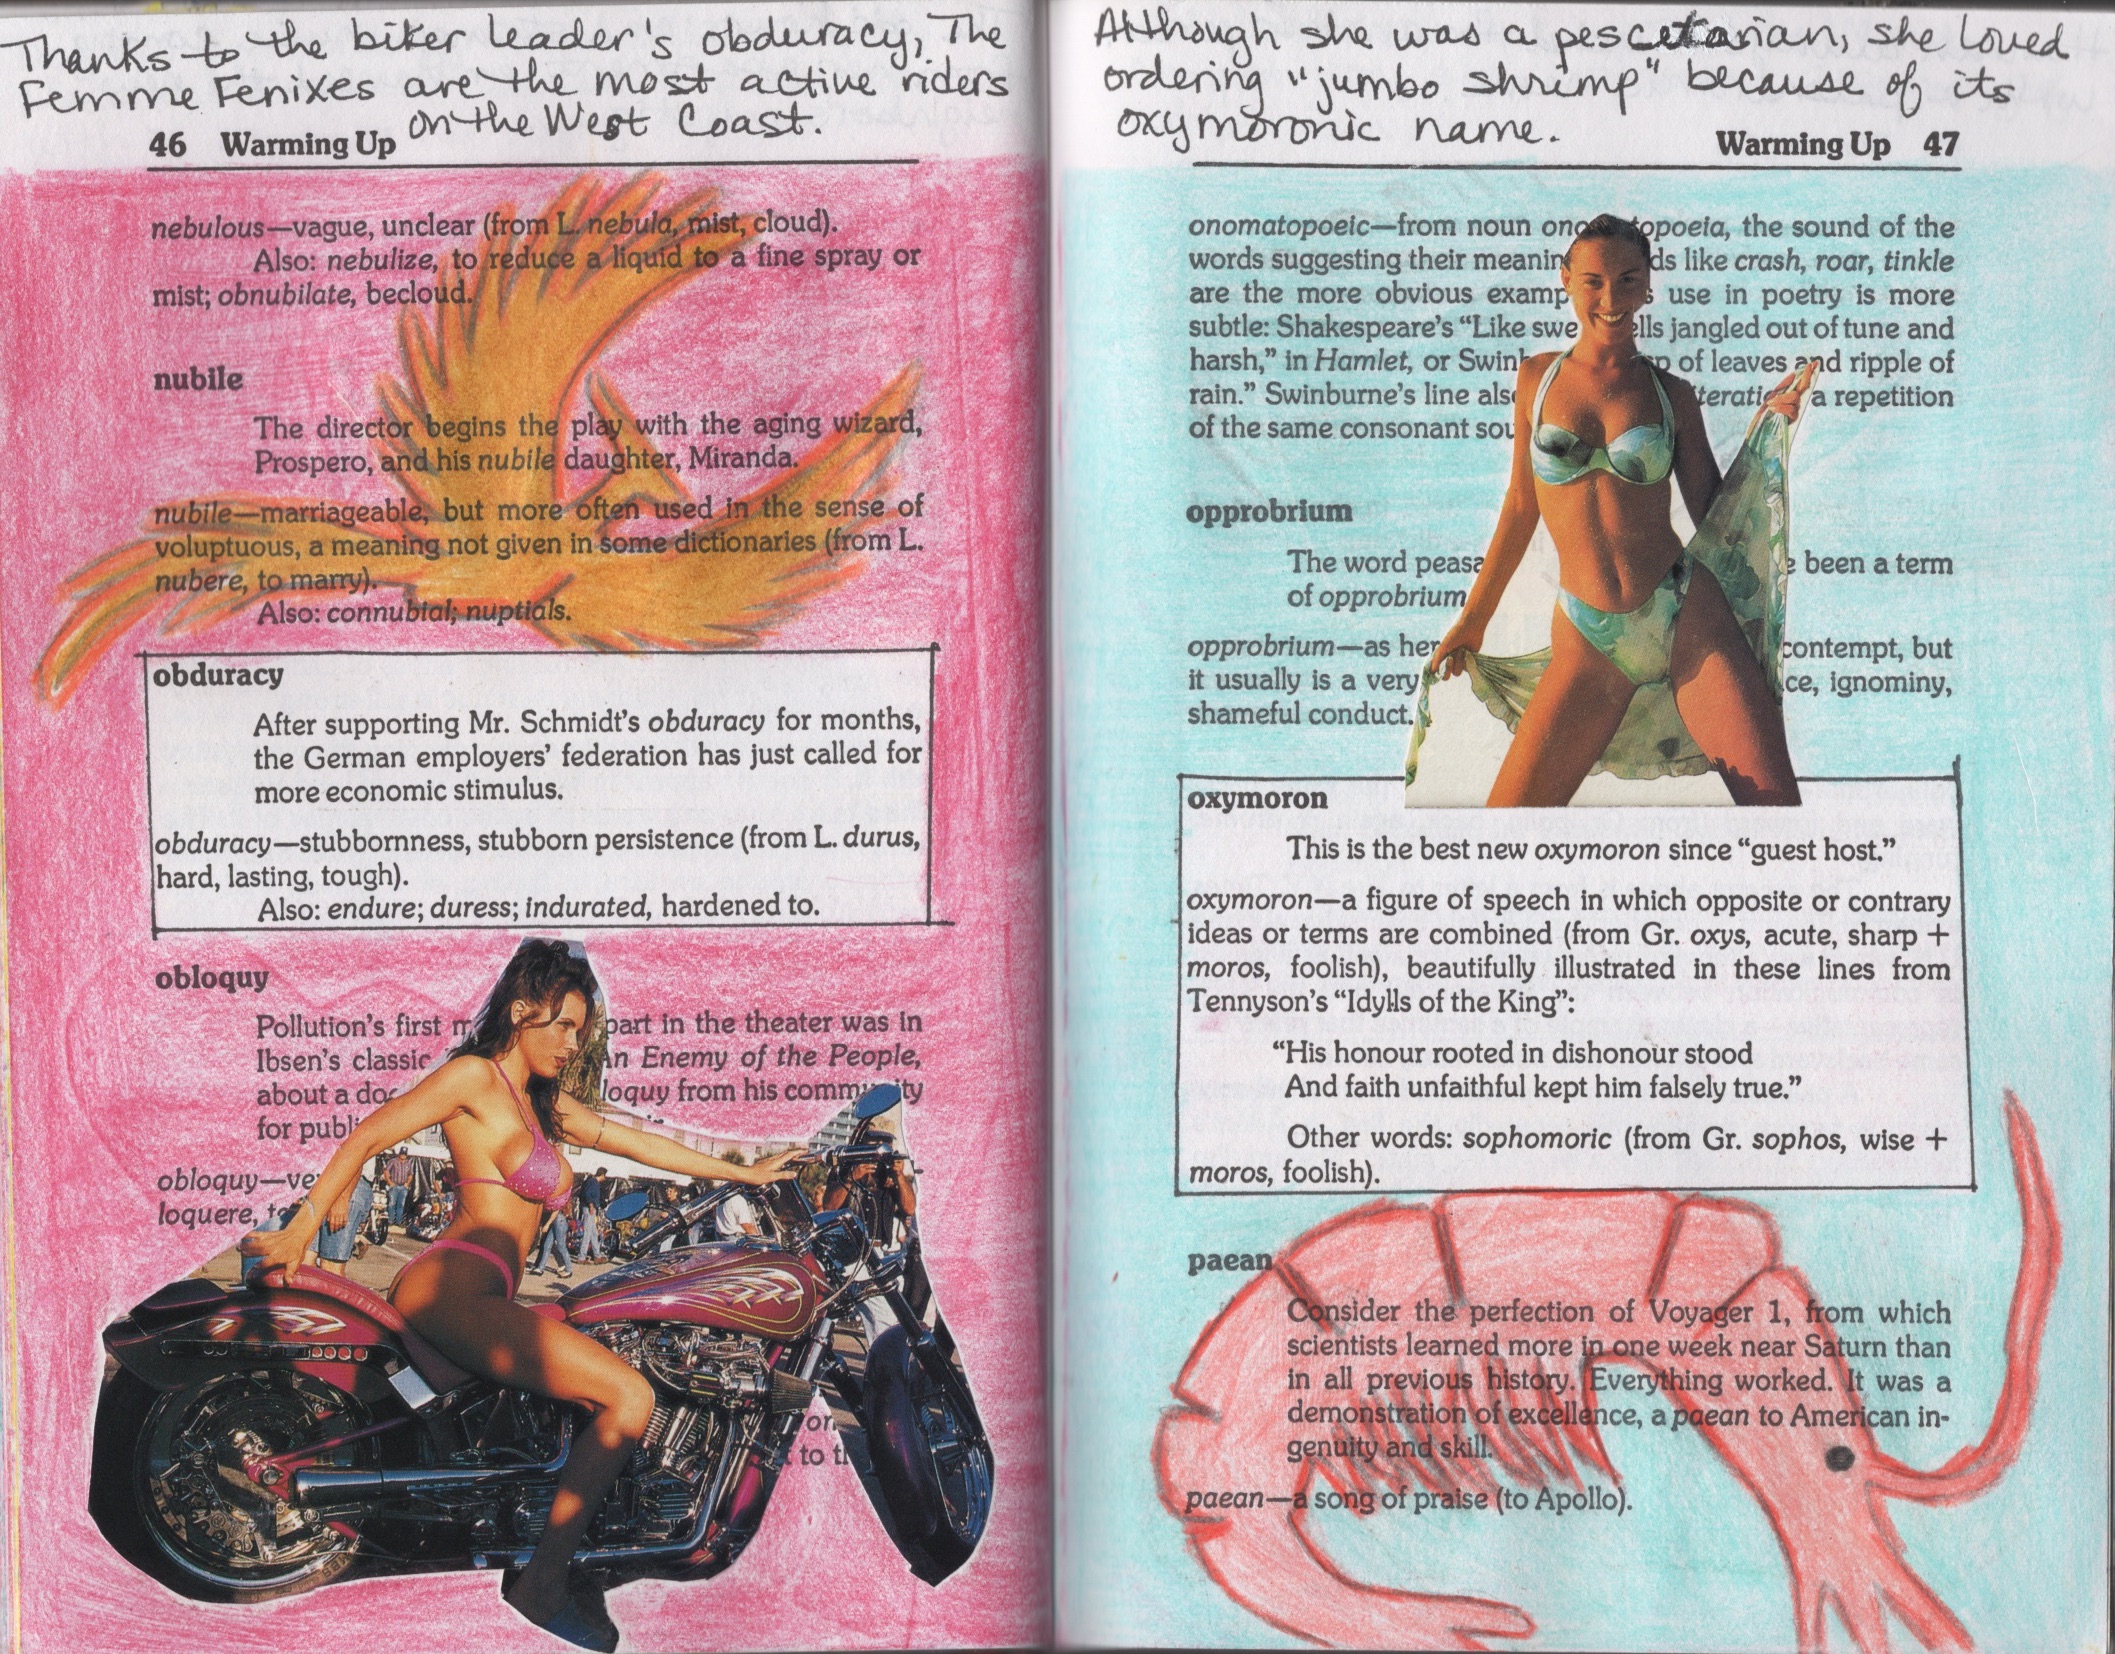 Thanks to the biker leader's obduracy, The
Femme Fenixes are the most active riders
on the West Coast.
46 Warming Up
nebulous—vague, unclear (from L. nebula, mist, cloud).
Also: nebulize, to reduce a liquid to a fine spray or
mist; obnubilate, becloud.
nubile
The director begins the play with the aging wizard,
Prospero, and his nubile daughter, Miranda.
nubile—marriageable, but more often used in the sense of
voluptuous, a meaning not given in some dictionaries (from L.
nubere, to marry).
Also: connubial; nuptials.
obduracy
After supporting Mr. Schmidt's obduracy for months,
the German employers' federation has just called for
more economic stimulus.
obduracy—stubbornness, stubborn persistence (from L. durus,
hard, lasting, tough).
Also: endure; duress; indurated, hardened to.
obloquy
Pollution's first part in the theater was in
Ibsen's classic An Enemy of the People,
about a from his community
for
obloquy—
loquere,
to
Although she was a pescetarian, she loved
ordering "jumbo shrimp" because of its
oxymoronic name.
Warming Up 47
onomatopoeic—from noun the sound of the
words suggesting their like crash, roar, tinkle
are the more obvious use in poetry is more
subtle: Shakespeare's "Like jangled out of tune and
harsh," in Hamlet, or of leaves and ripple of
rain." Swinburne's line a repetition
of the same consonant
opprobrium
The word been a term
of opprobrium
opprobrium—as contempt, but
it usually is a very ignominy,
shameful conduct.
oxymoron
This is the best new oxymoron since "guest host."
oxymoron—a figure of speech in which opposite or contrary
ideas or terms are combined (from Gr. oxys, acute, sharp +
moros, foolish), beautifully illustrated in these lines from
Tennyson's "Idylls of the King":
"His honour rooted in dishonour stood
And faith unfaithful kept him falsely true."
Other words: sophomoric (from Gr. sophos, wise +
moros, foolish).
paean
Consider the perfection of Voyager 1, from which
scientists learned more in one week near Saturn than
in all previous history. Everything worked. It was a
demonstration of excellence, a paean to American in-
genuity and skill.
paean—a song of praise (to Apollo).